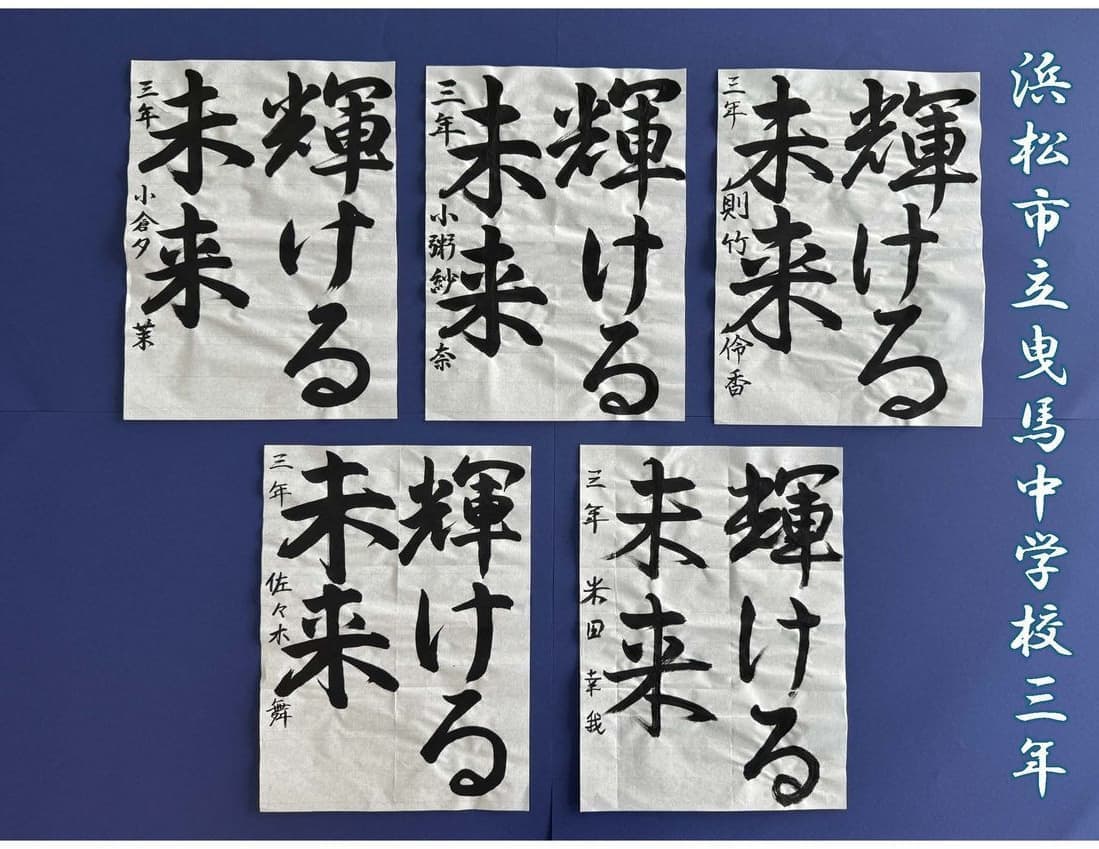 浜松市立曳馬中学校三年
輝ける
未来
三年 則竹 伶香
輝ける
未来
三年 小粥紗奈
輝ける
未来
三年 小倉夕茉
輝ける
未来
三年 米田 幸我
輝ける
未来
三年 佐々木 舞